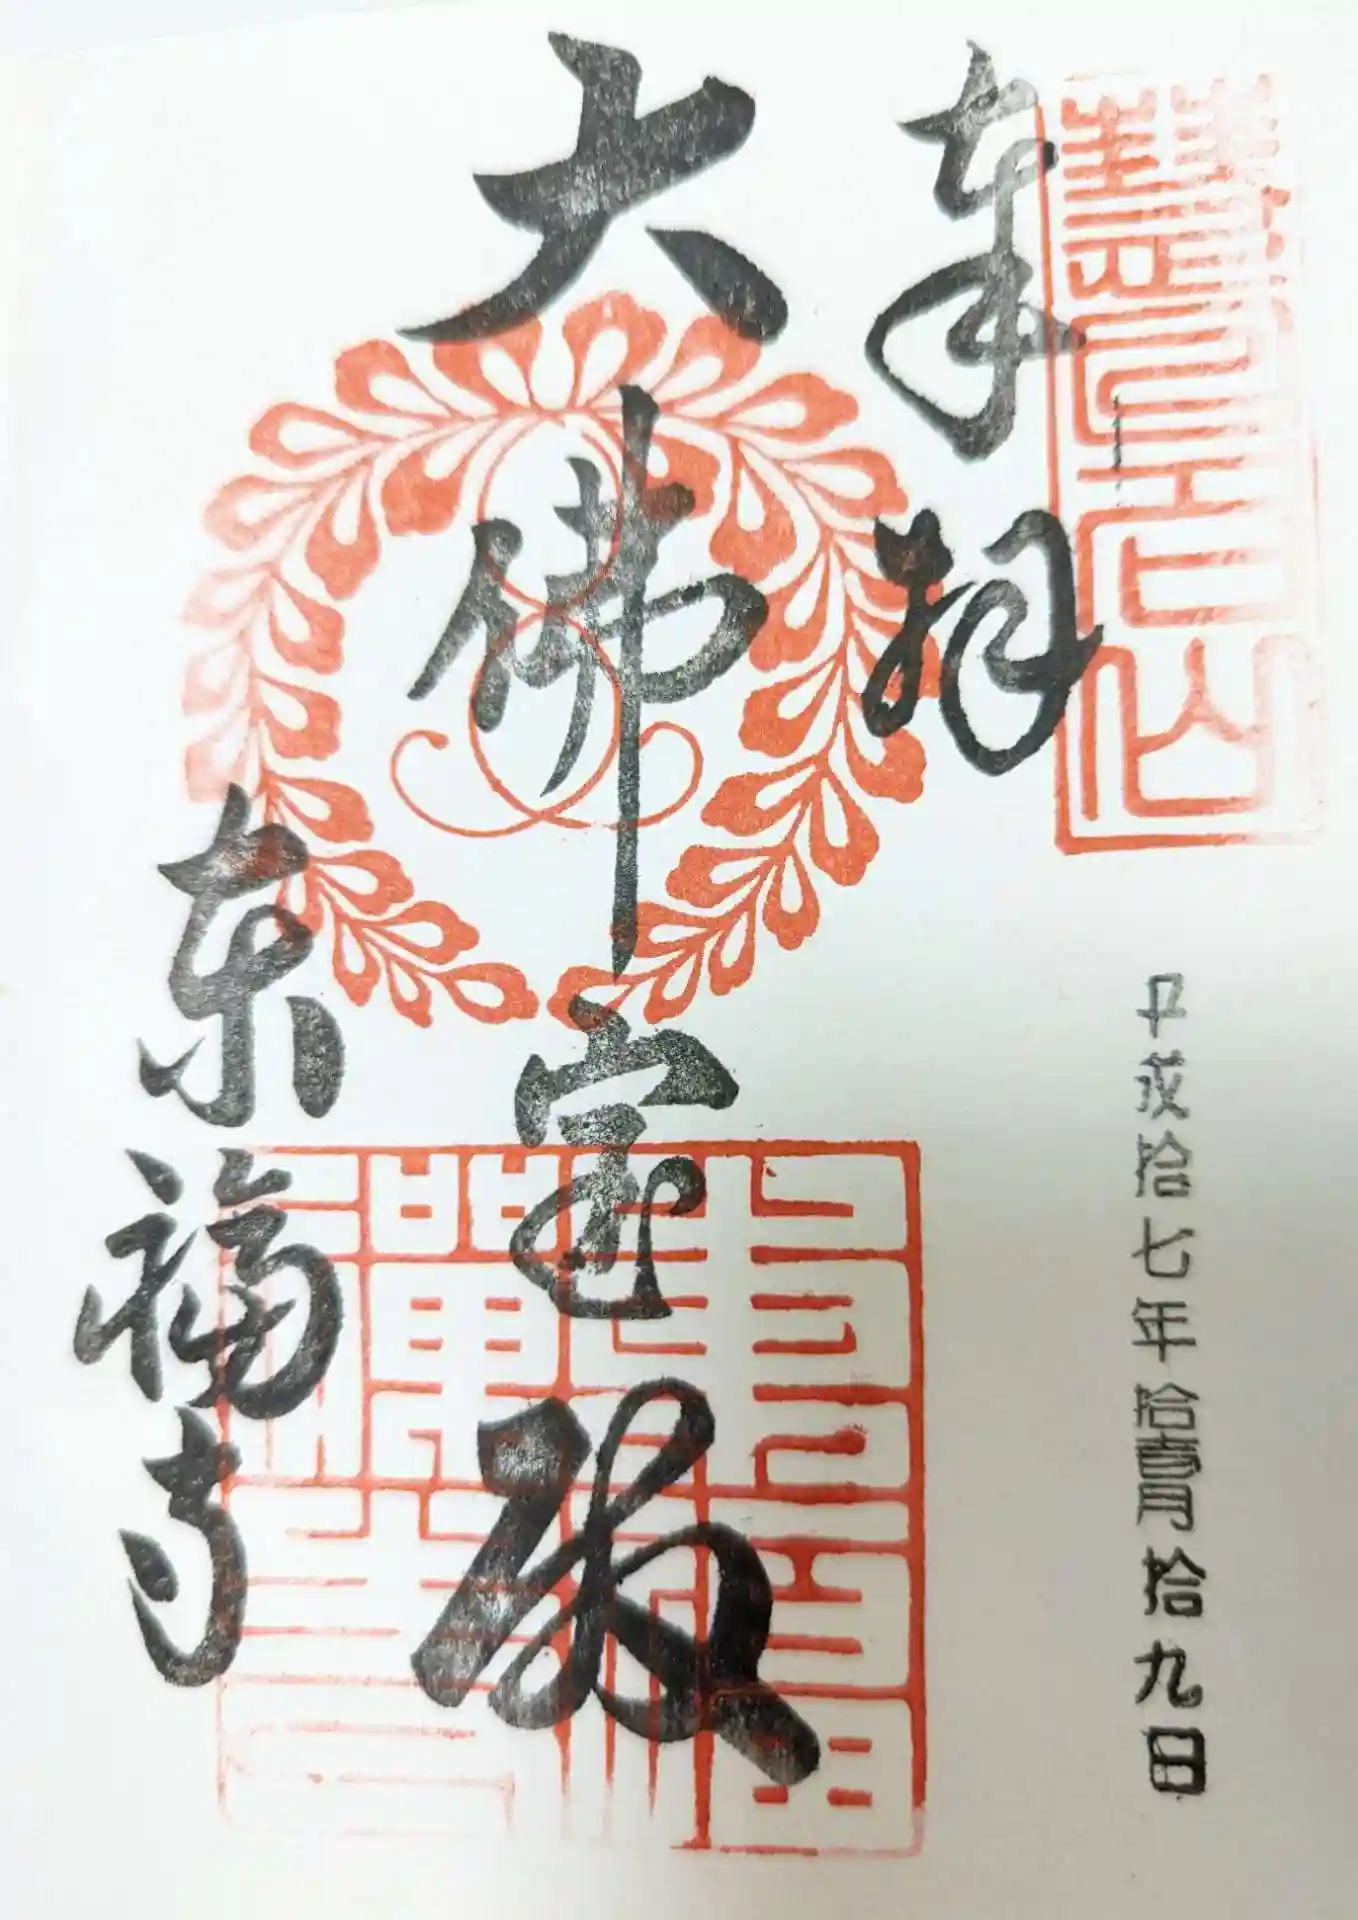 奉拝
平成拾七年拾壹月拾九日
大佛宝殿
東福寺
慧日山